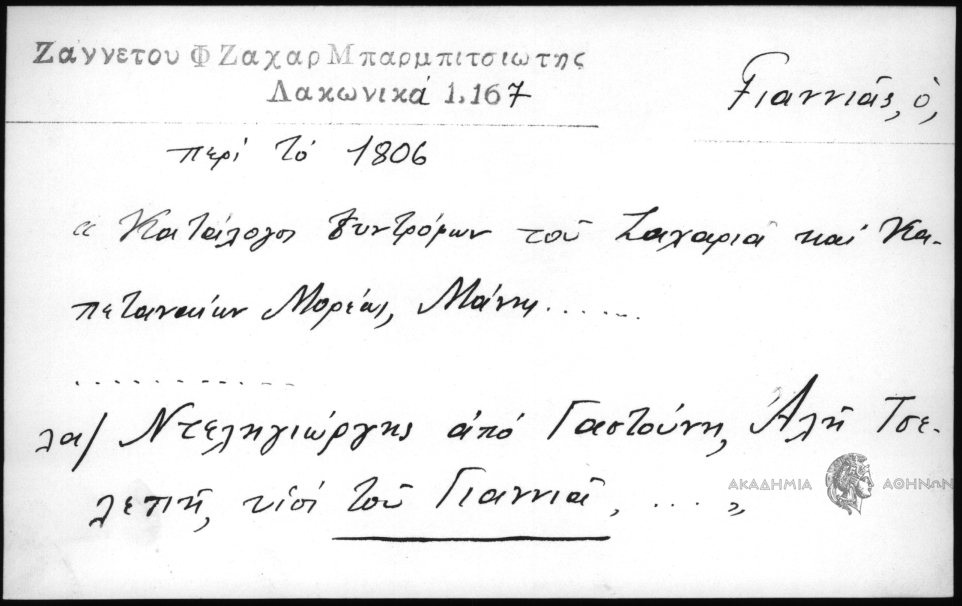 Ζαννετου Φ Ζαχαρ Μπαρμπιτσιωτης
Λακωνικά 1.167
Γιαννιᾶς, ὁ,
περί τό 1806
“ Κατάλογοι Συντρόμων τοῦ Ζαχαριᾶ καί Κα-
πεταναίων Μορέως, Μάνης.......
..............
λα/ Ντεληγιώργης ἀπό Γαστούνη, Ἀλῆ Τσε-
λεπῆ, υἱοί τοῦ Γιαννιᾶ, .... ”
ΑΚΑΔΗΜΙΑ ΑΘΗΝΩΝ